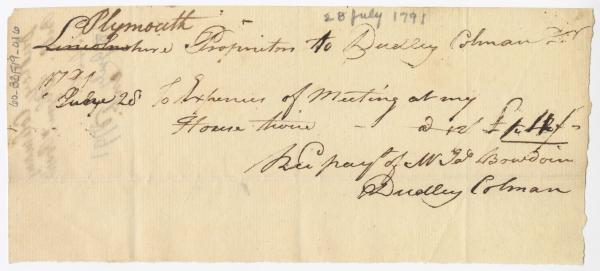 28 July 1791
Plymouth
Lincolnshire Proprietors to Dudley Colman Dr
1791
July 28 To Expences of Meeting at my
House twice - - a 12/ £1.4.-
Rec'd pay't of Mr Jas Bowdoin
Dudley Colman